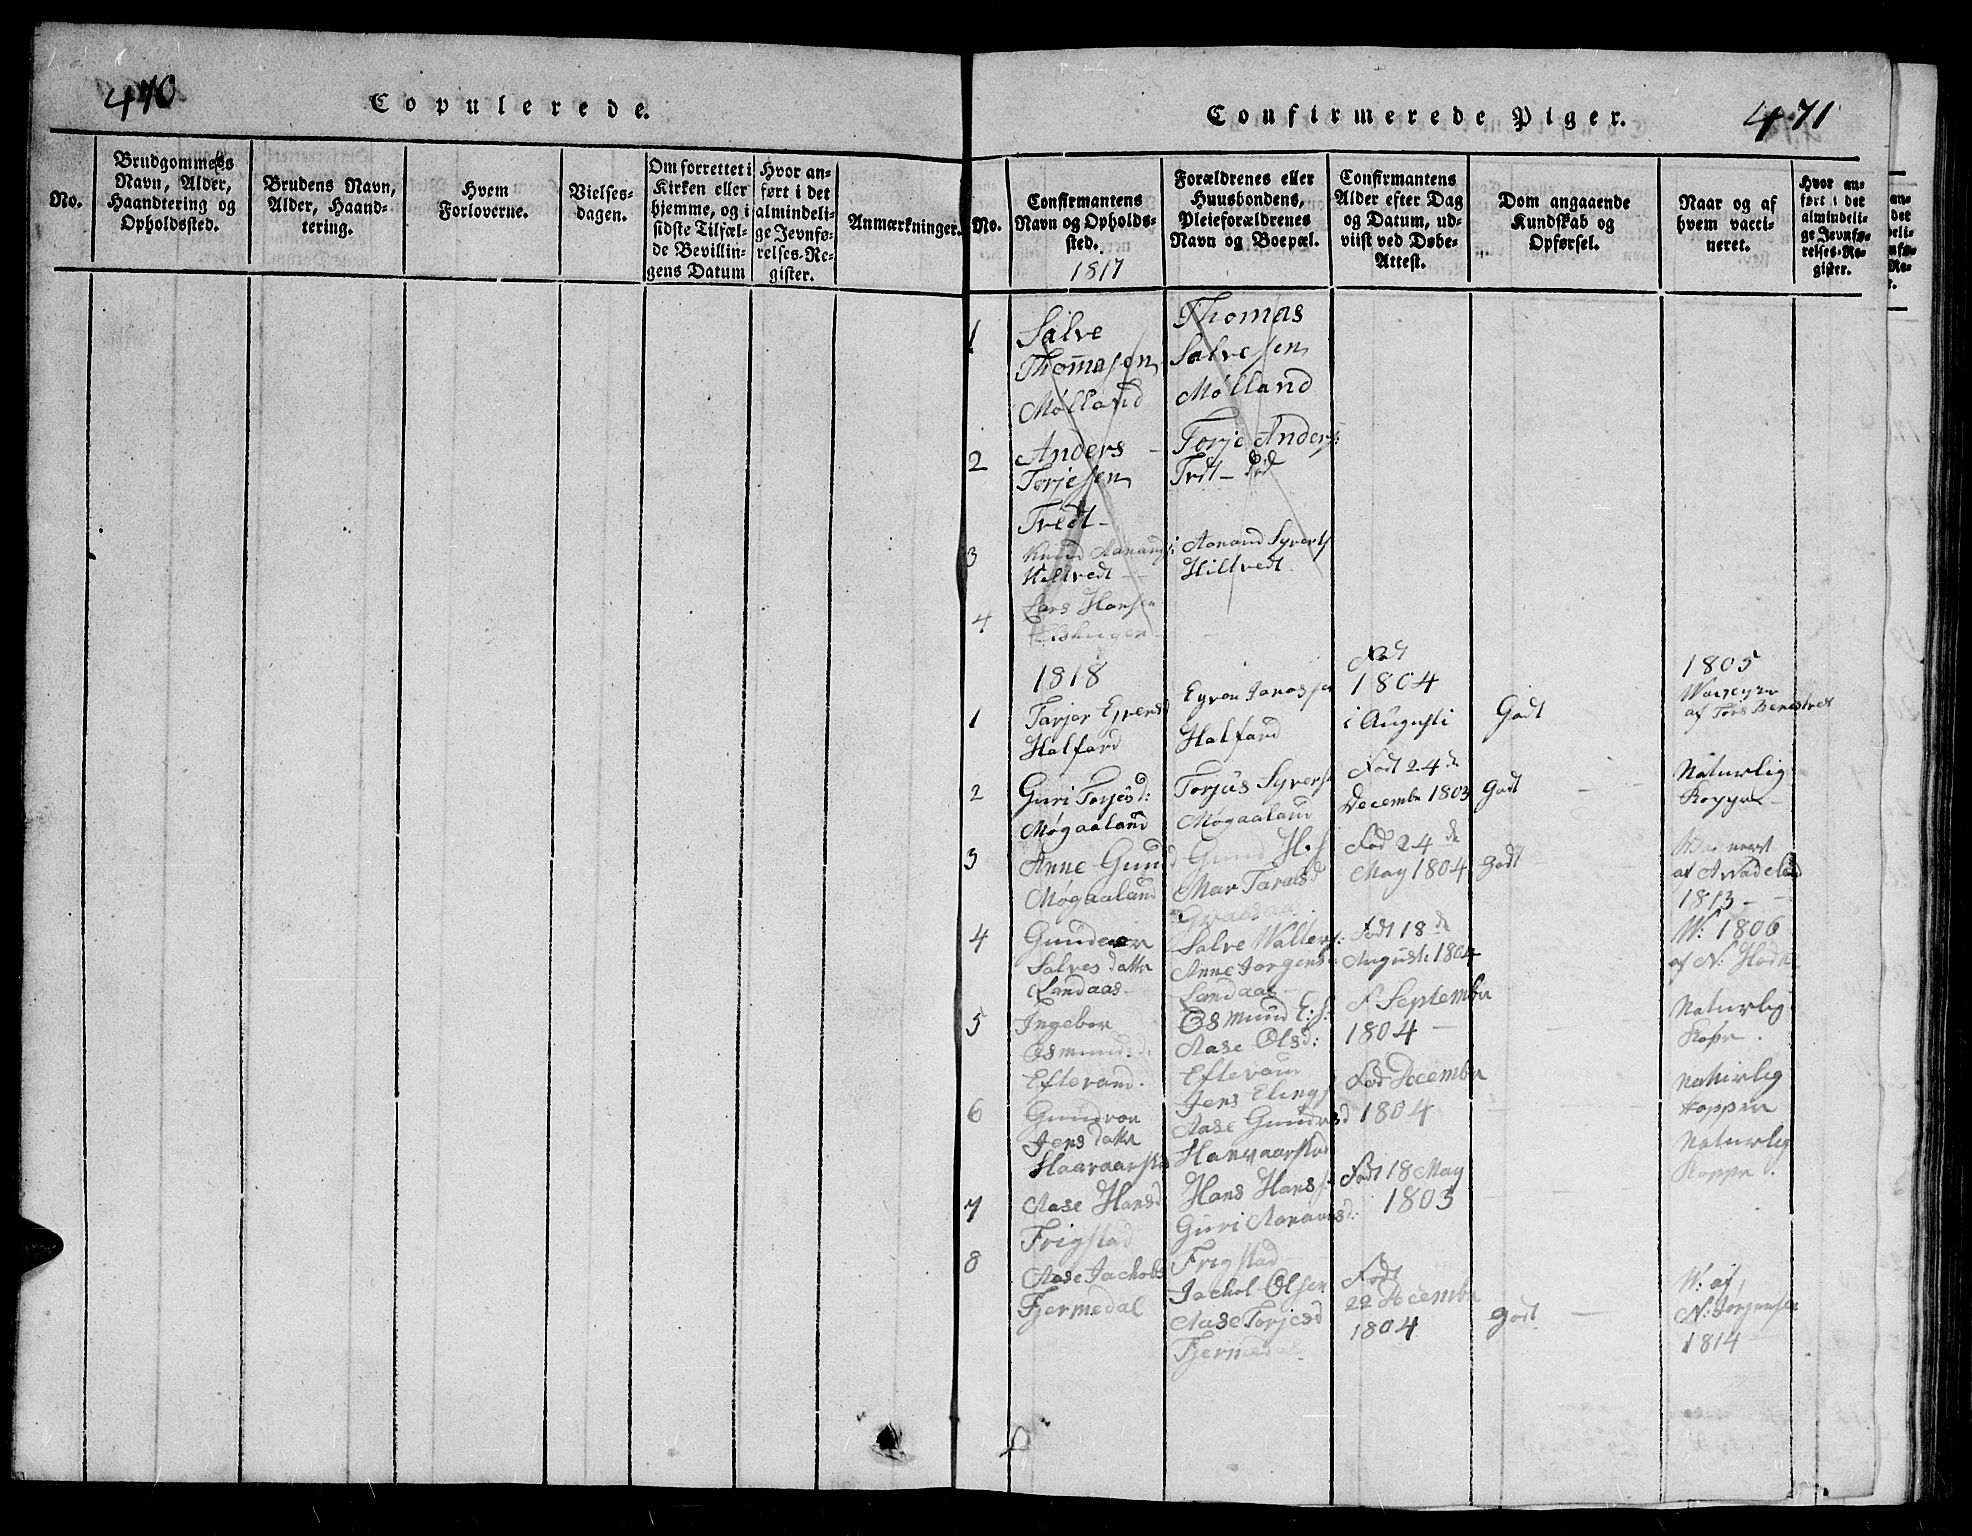 470
Copulerede.
No.
Brudgommens
Navn, Alder,
Haandtering og
Opholdssted.
Brudens Navn,
Alder, Haand-
tering.
Hvem
Forloverne.
Vielses-
dagen.
Om forrettet i
Kirken eller
hjemme, og i
sidste Tilfæl-
de Bevillin-
gens Datum
Hvor an-
ført i det
almindeli-
ge Jevnfø-
relses-Re-
gister.
Anmærkninger.
Confirmerede Piger.
471
No.
Confirmantens
Navn og Opholds-
sted.
1817
Forældrenes eller
Huusbondens,
Pleieforældrenes
Navn og Boepæl.
Confirmantens
Alder efter Dag
og Datum, ud-
viist ved Døbe-
Attest.
Dom angaaende
Kundskab og
Opførsel.
Naar og af
hvem vacci-
neret.
Hvor an-
ført i det
almindeli-
ge Jevnfø-
relses-Re-
gister.
1
Salve
Thomasen
Mølland
Thomas
Salvesen
Mølland
2
Anders
Torjesen
Tredt
Torje Anders:
Trdt - død
3
Knud Aanands:
Hiltvedt
Aanand Syverts
Hiltvedt
4
Lars Hansen
1818
1
Tarjer Egrensd
Halfard
Egren Janassen
Halfard
Født
1804
i Augusti
Godt
1805
af Tors Benestvet
2
Guri Torjusd:
Møgaaland
Torjus Syvers
Møgaaland
Født 24de
Decembr 1803
Godt
Naturlig
Kopper
3
Anne Gund
Møgaaland
Gund H.s
Mar Taralsd
Født 24de
May 1804
Godt
af Aadeland
1813
4
Gunder
Salves datter
Landaas
Salve Wallers:
Anne Jorgens
Landaas
Født 18de
Augusti 1804
W: 1806
af N: Hodn
5
Ingebor
Osmunds d:
Eftevand.
Osmund E:s:
Aase Olsd:
Eftevand
F. Septembr
1804
Naturlig
Kopr.
6
Gundvor
Jens datter
Haavaarstad
Jens Elings
Aase Gundersd
Hanvaarstad
Fød Decembr
1804
Naturlig
Kopper
7
Aase Hansd
Frigstad
Hans Hans s:
Guri Aanansd:
Frigstad
Født 18 May
1803
Naturlig
Koppr.
8
Aase Jachobs
Fjermedal
Jachol Olsen
Aase Torjesd
Fjermedal
Født
22 Decembr
1804
Godt
W: af
N: Jørgensen
1814